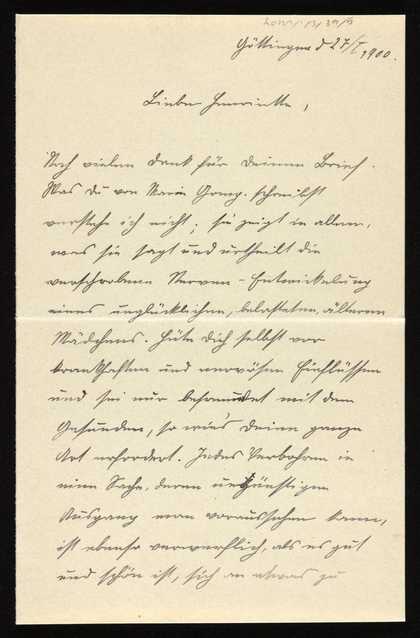 Göttingen d 27/I 1900.
Liebe Henriette,
Noch vielen Dank für Deinen Brief.
Was Du von Marie Gomp. schreibst
verstehe ich nicht; sie zeigt in allem,
was sie sagt und urtheilt die
verschrobene Nerven-Entwickelung
eines unglücklichen, belasteten, älteren
Mädchens. Hüte Dich selbst vor
krankhaften und nervösen Einflüssen
und sei nur befreundet mit den
Gesunden, so wie's Deine ganze
Art erfordert. Jedes Verbohren in
eine Sache, deren ungünstigen
Ausgang man voraussehen kann,
ist ebenso verwerflich, als es gut
und schön ist, sich an etwas zu